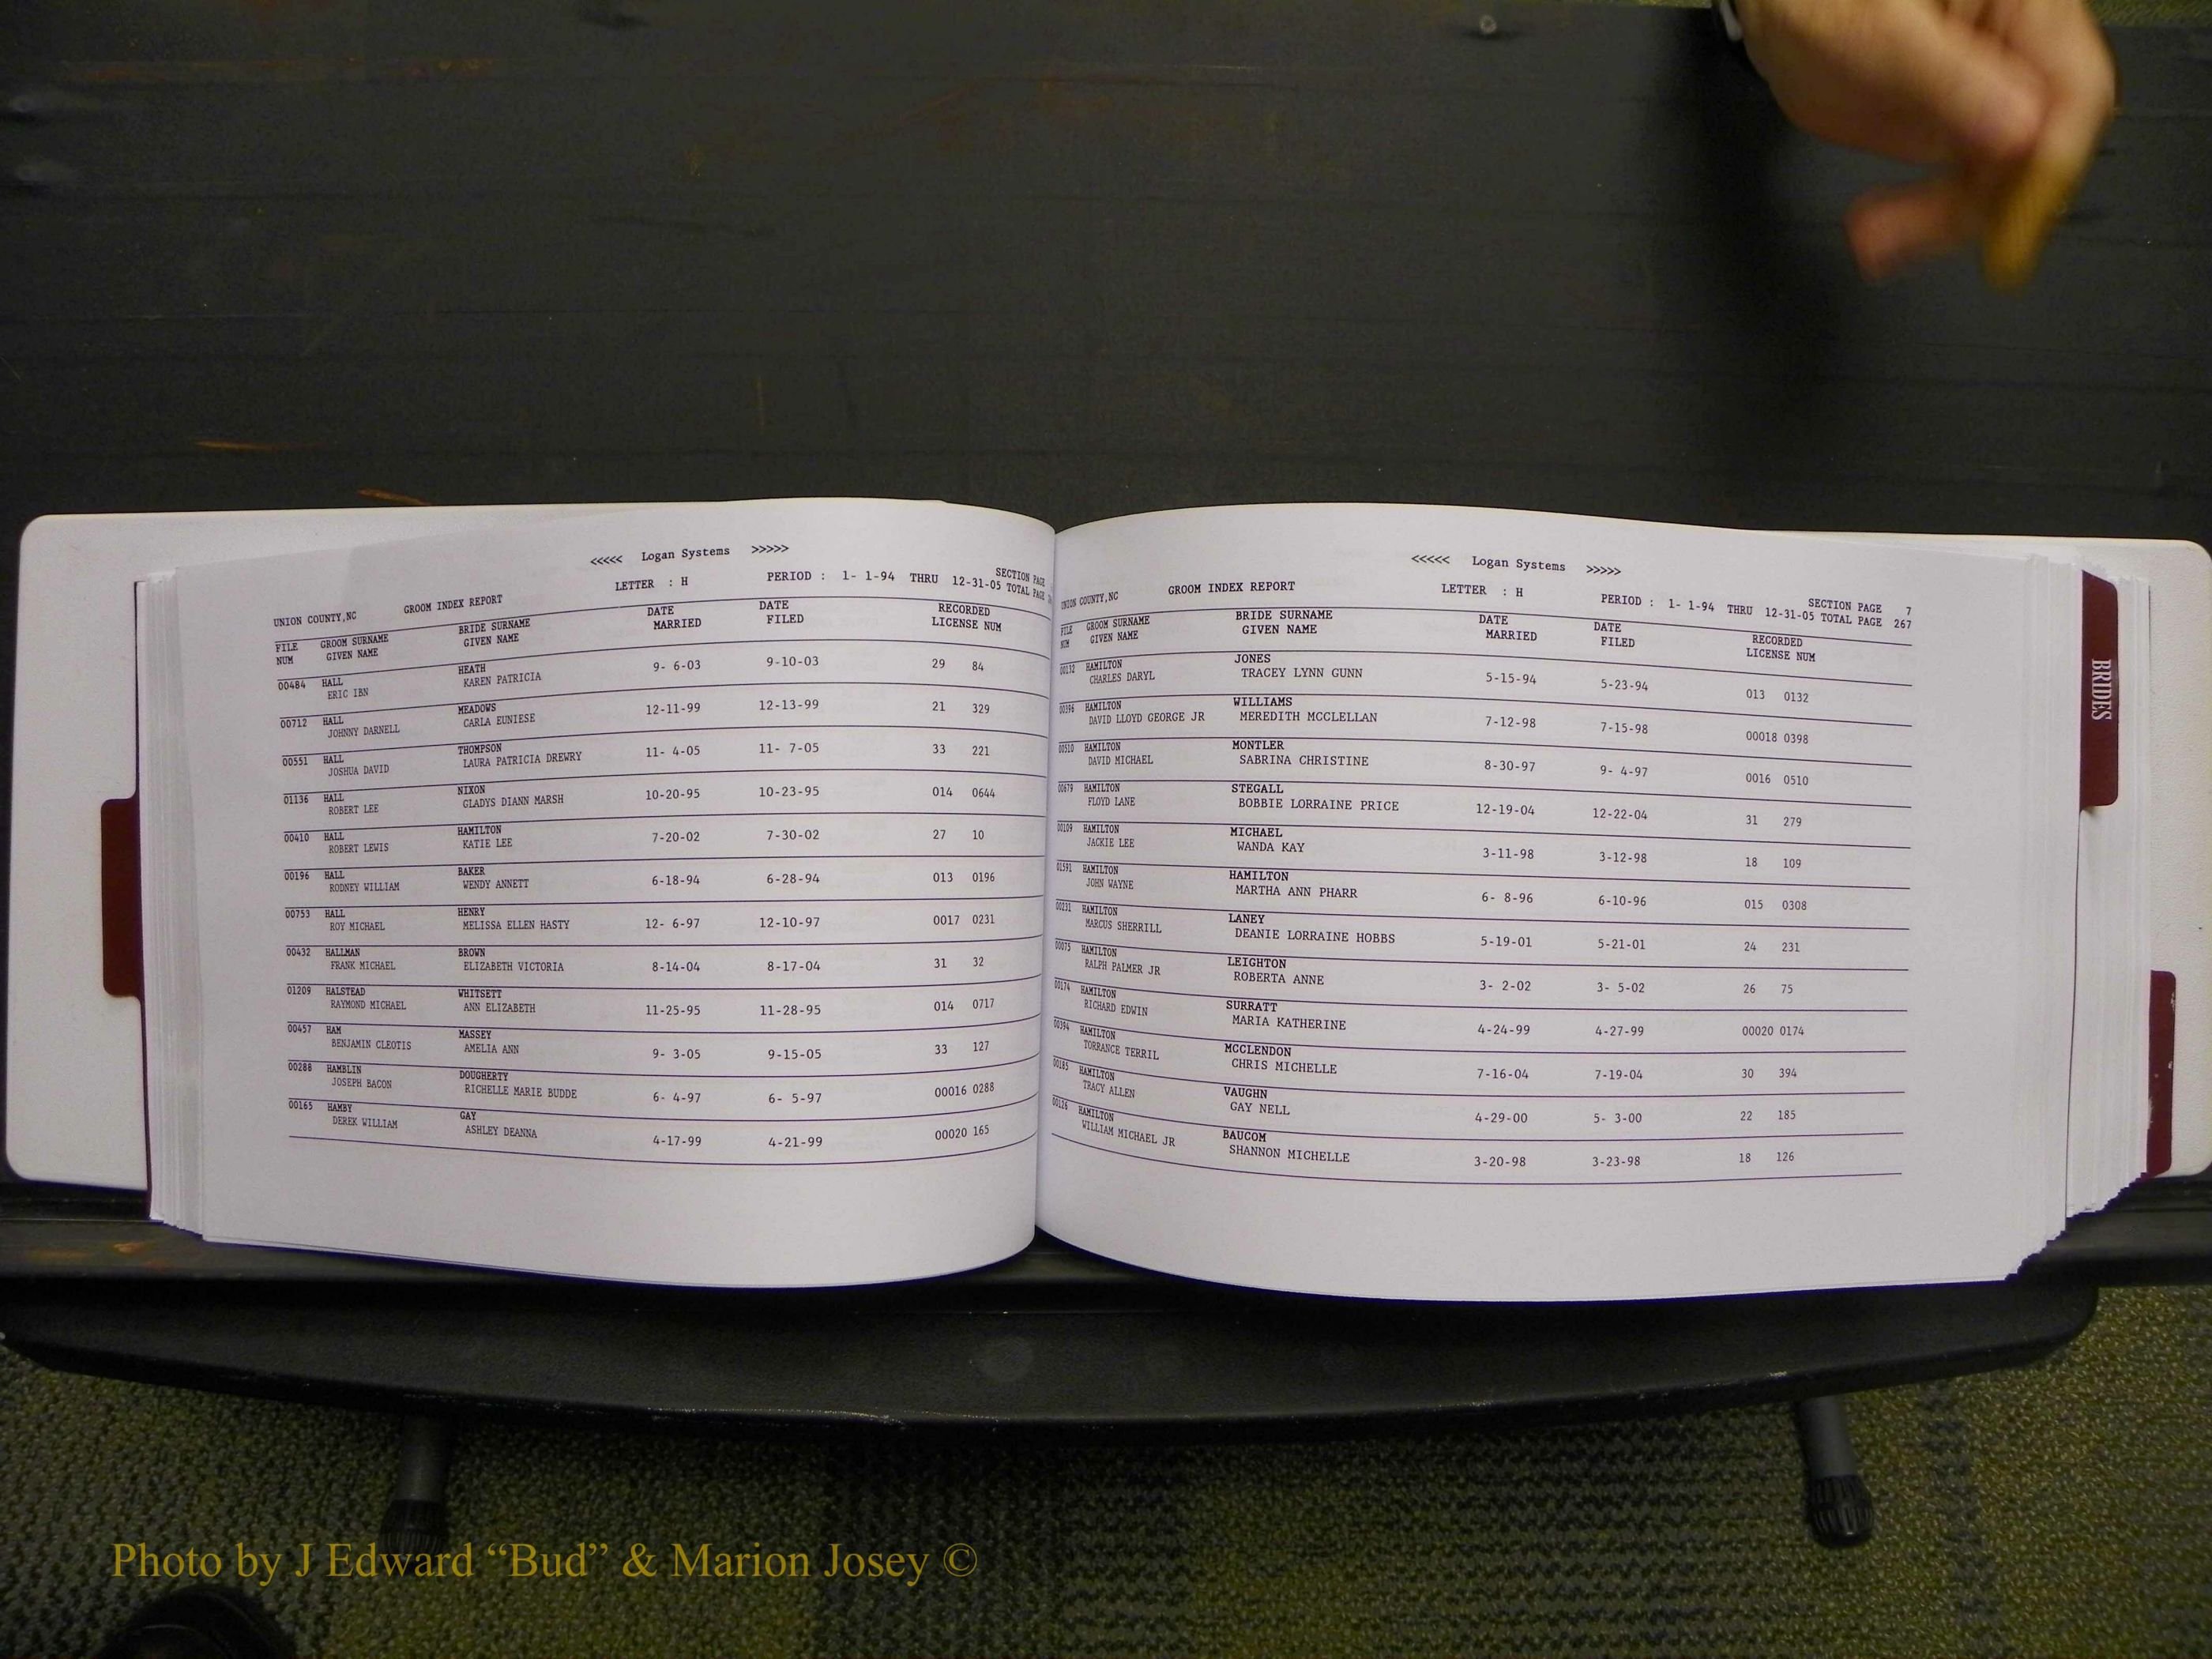 <<<<< Logan Systems >>>>>
UNION COUNTY,NC GROOM INDEX REPORT LETTER : H PERIOD : 1- 1-94 THRU 12-31-05 SECTION PAGE
TOTAL PAGE
FILE GROOM SURNAME BRIDE SURNAME DATE DATE RECORDED
NUM GIVEN NAME GIVEN NAME MARRIED FILED LICENSE NUM
00484 HALL HEATH 9- 6-03 9-10-03 29 84
ERIC IBN KAREN PATRICIA
00712 HALL MEADOWS 12-11-99 12-13-99 21 329
JOHNNY DARNELL CARLA EUNIESE
00551 HALL THOMPSON 11- 4-05 11- 7-05 33 221
JOSHUA DAVID LAURA PATRICIA DREWRY
01136 HALL NIXON 10-20-95 10-23-95 014 0644
ROBERT LEE GLADYS DIANN MARSH
00410 HALL HAMILTON 7-20-02 7-30-02 27 10
ROBERT LEWIS KATIE LEE
00196 HALL BAKER 6-18-94 6-28-94 013 0196
RODNEY WILLIAM WENDY ANNETT
00753 HALL HENRY 12- 6-97 12-10-97 0017 0231
ROY MICHAEL MELISSA ELLEN HASTY
00432 HALLMAN BROWN 8-14-04 8-17-04 31 32
FRANK MICHAEL ELIZABETH VICTORIA
01209 HALSTEAD WHITSETT 11-25-95 11-28-95 014 0717
RAYMOND MICHAEL ANN ELIZABETH
00457 HAM MASSEY 9- 3-05 9-15-05 33 127
BENJAMIN CLEOTIS AMELIA ANN
00288 HAMBLIN DOUGHERTY 6- 4-97 6- 5-97 00016 0288
JOSEPH BACON RICHELLE MARIE BUDDE
00165 HAMBY GAY 4-17-99 4-21-99 00020 165
DEREK WILLIAM ASHLEY DEANNA
<<<<< Logan Systems >>>>>
UNION COUNTY,NC GROOM INDEX REPORT LETTER : H PERIOD : 1- 1-94 THRU 12-31-05 SECTION PAGE 7
TOTAL PAGE 267
FILE GROOM SURNAME BRIDE SURNAME DATE DATE RECORDED
NUM GIVEN NAME GIVEN NAME MARRIED FILED LICENSE NUM
00132 HAMILTON JONES 5-15-94 5-23-94 013 0132
CHARLES DARYL TRACEY LYNN GUNN
HAMILTON WILLIAMS 7-12-98 7-15-98 00018 0398
DAVID LLOYD GEORGE JR MEREDITH MCCLELLAN
00510 HAMILTON MONTLER 8-30-97 9- 4-97 0016 0510
DAVID MICHAEL SABRINA CHRISTINE
00679 HAMILTON STEGALL 12-19-04 12-22-04 31 279
FLOYD LANE BOBBIE LORRAINE PRICE
00109 HAMILTON MICHAEL 3-11-98 3-12-98 18 109
JACKIE LEE WANDA KAY
01591 HAMILTON HAMILTON 6- 8-96 6-10-96 015 0308
JOHN WAYNE MARTHA ANN PHARR
00231 HAMILTON LANEY 5-19-01 5-21-01 24 231
MARCUS SHERRILL DEANIE LORRAINE HOBBS
00075 HAMILTON LEIGHTON 3- 2-02 3- 5-02 26 75
RALPH PALMER JR ROBERTA ANNE
00174 HAMILTON SURRATT 4-24-99 4-27-99 00020 0174
RICHARD EDWIN MARIA KATHERINE
00394 HAMILTON MCCLENDON 7-16-04 7-19-04 30 394
TORRANCE TERRIL CHRIS MICHELLE
00185 HAMILTON VAUGHN 4-29-00 5- 3-00 22 185
TRACY ALLEN GAY NELL
00126 HAMILTON BAUCOM 3-20-98 3-23-98 18 126
WILLIAM MICHAEL JR SHANNON MICHELLE
BRIDES
Photo by J Edward “Bud” & Marion Josey ©